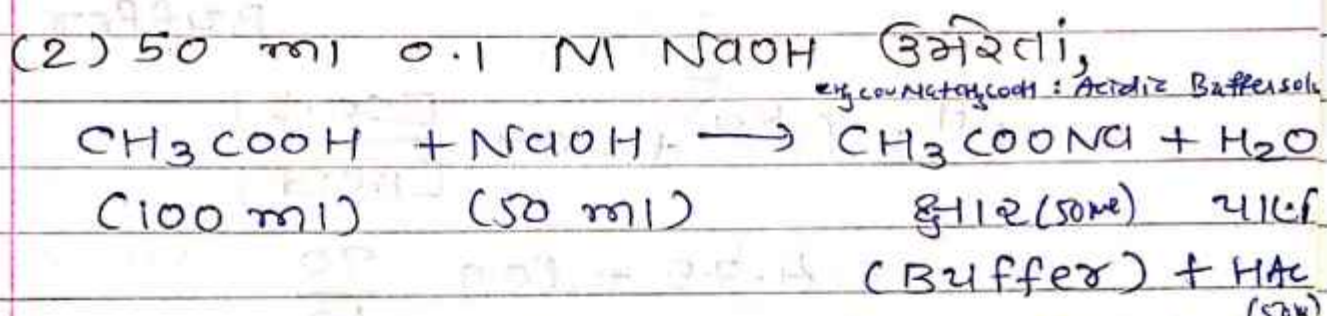 (2) 50 ml 0.1 M NaOH ઉમેરતાં,
CH3COONa+CH3COOH : Acidic Buffer soln
CH3COOH + NaOH → CH3COONa + H2O
(100 ml) (50 ml) ક્ષાર (50ml) પાણી
(Buffer) + HAc
(50ml)